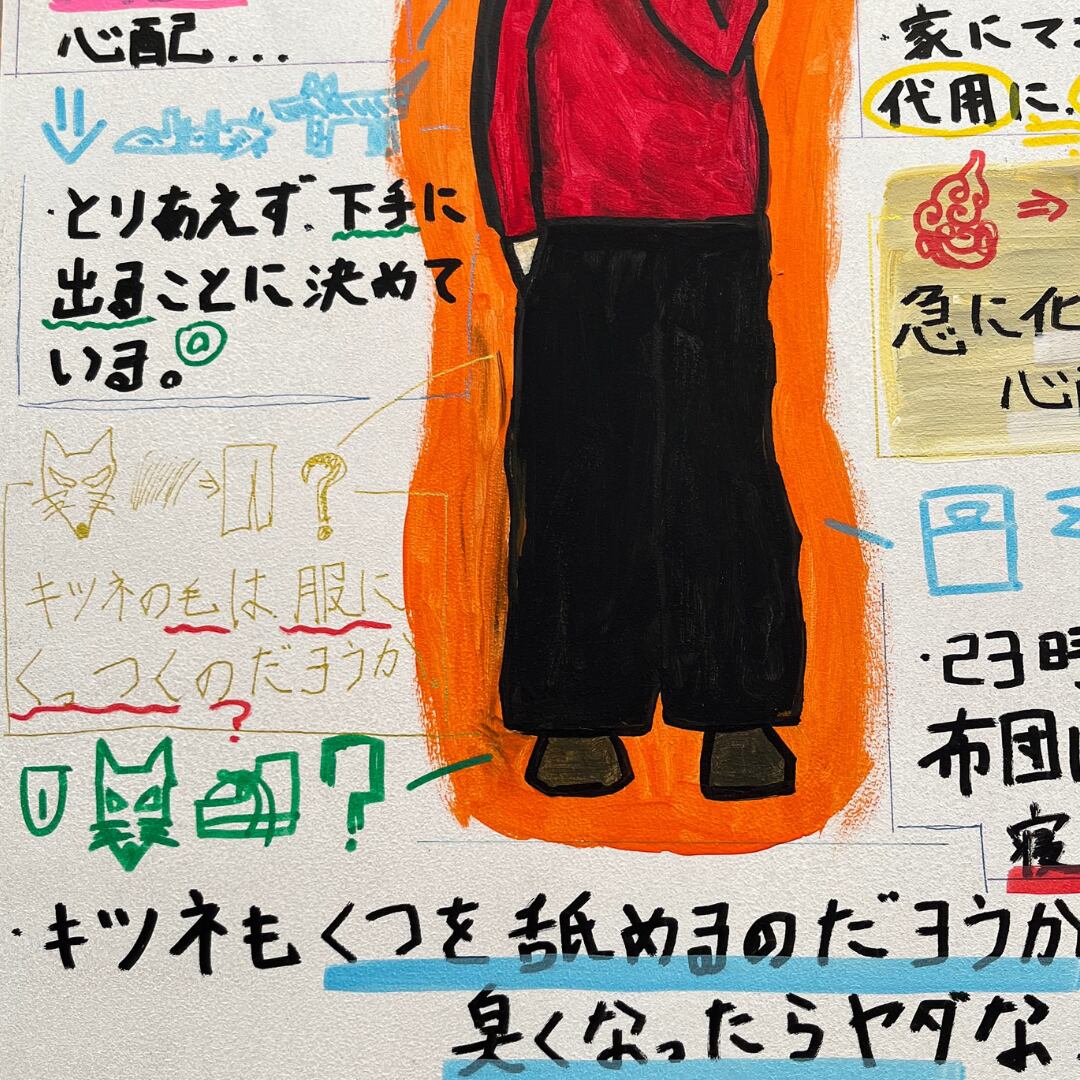 心配...
・とりあえず、下手に
出ることに決めて
いる。
キツネの毛は、服に
くっつくのだろうか
?
・キツネもくつを舐めるのだろうか
臭くなったらヤダな
・家にマ
代用に、
急に化
心配
・23時
布団に
寝